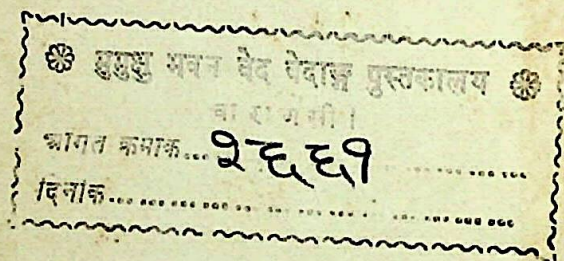 मुमुक्षु भवन वेद वेदाङ्ग पुस्तकालय
वाराणसी।
आगत क्रमाक... २६६१
दिनांक...